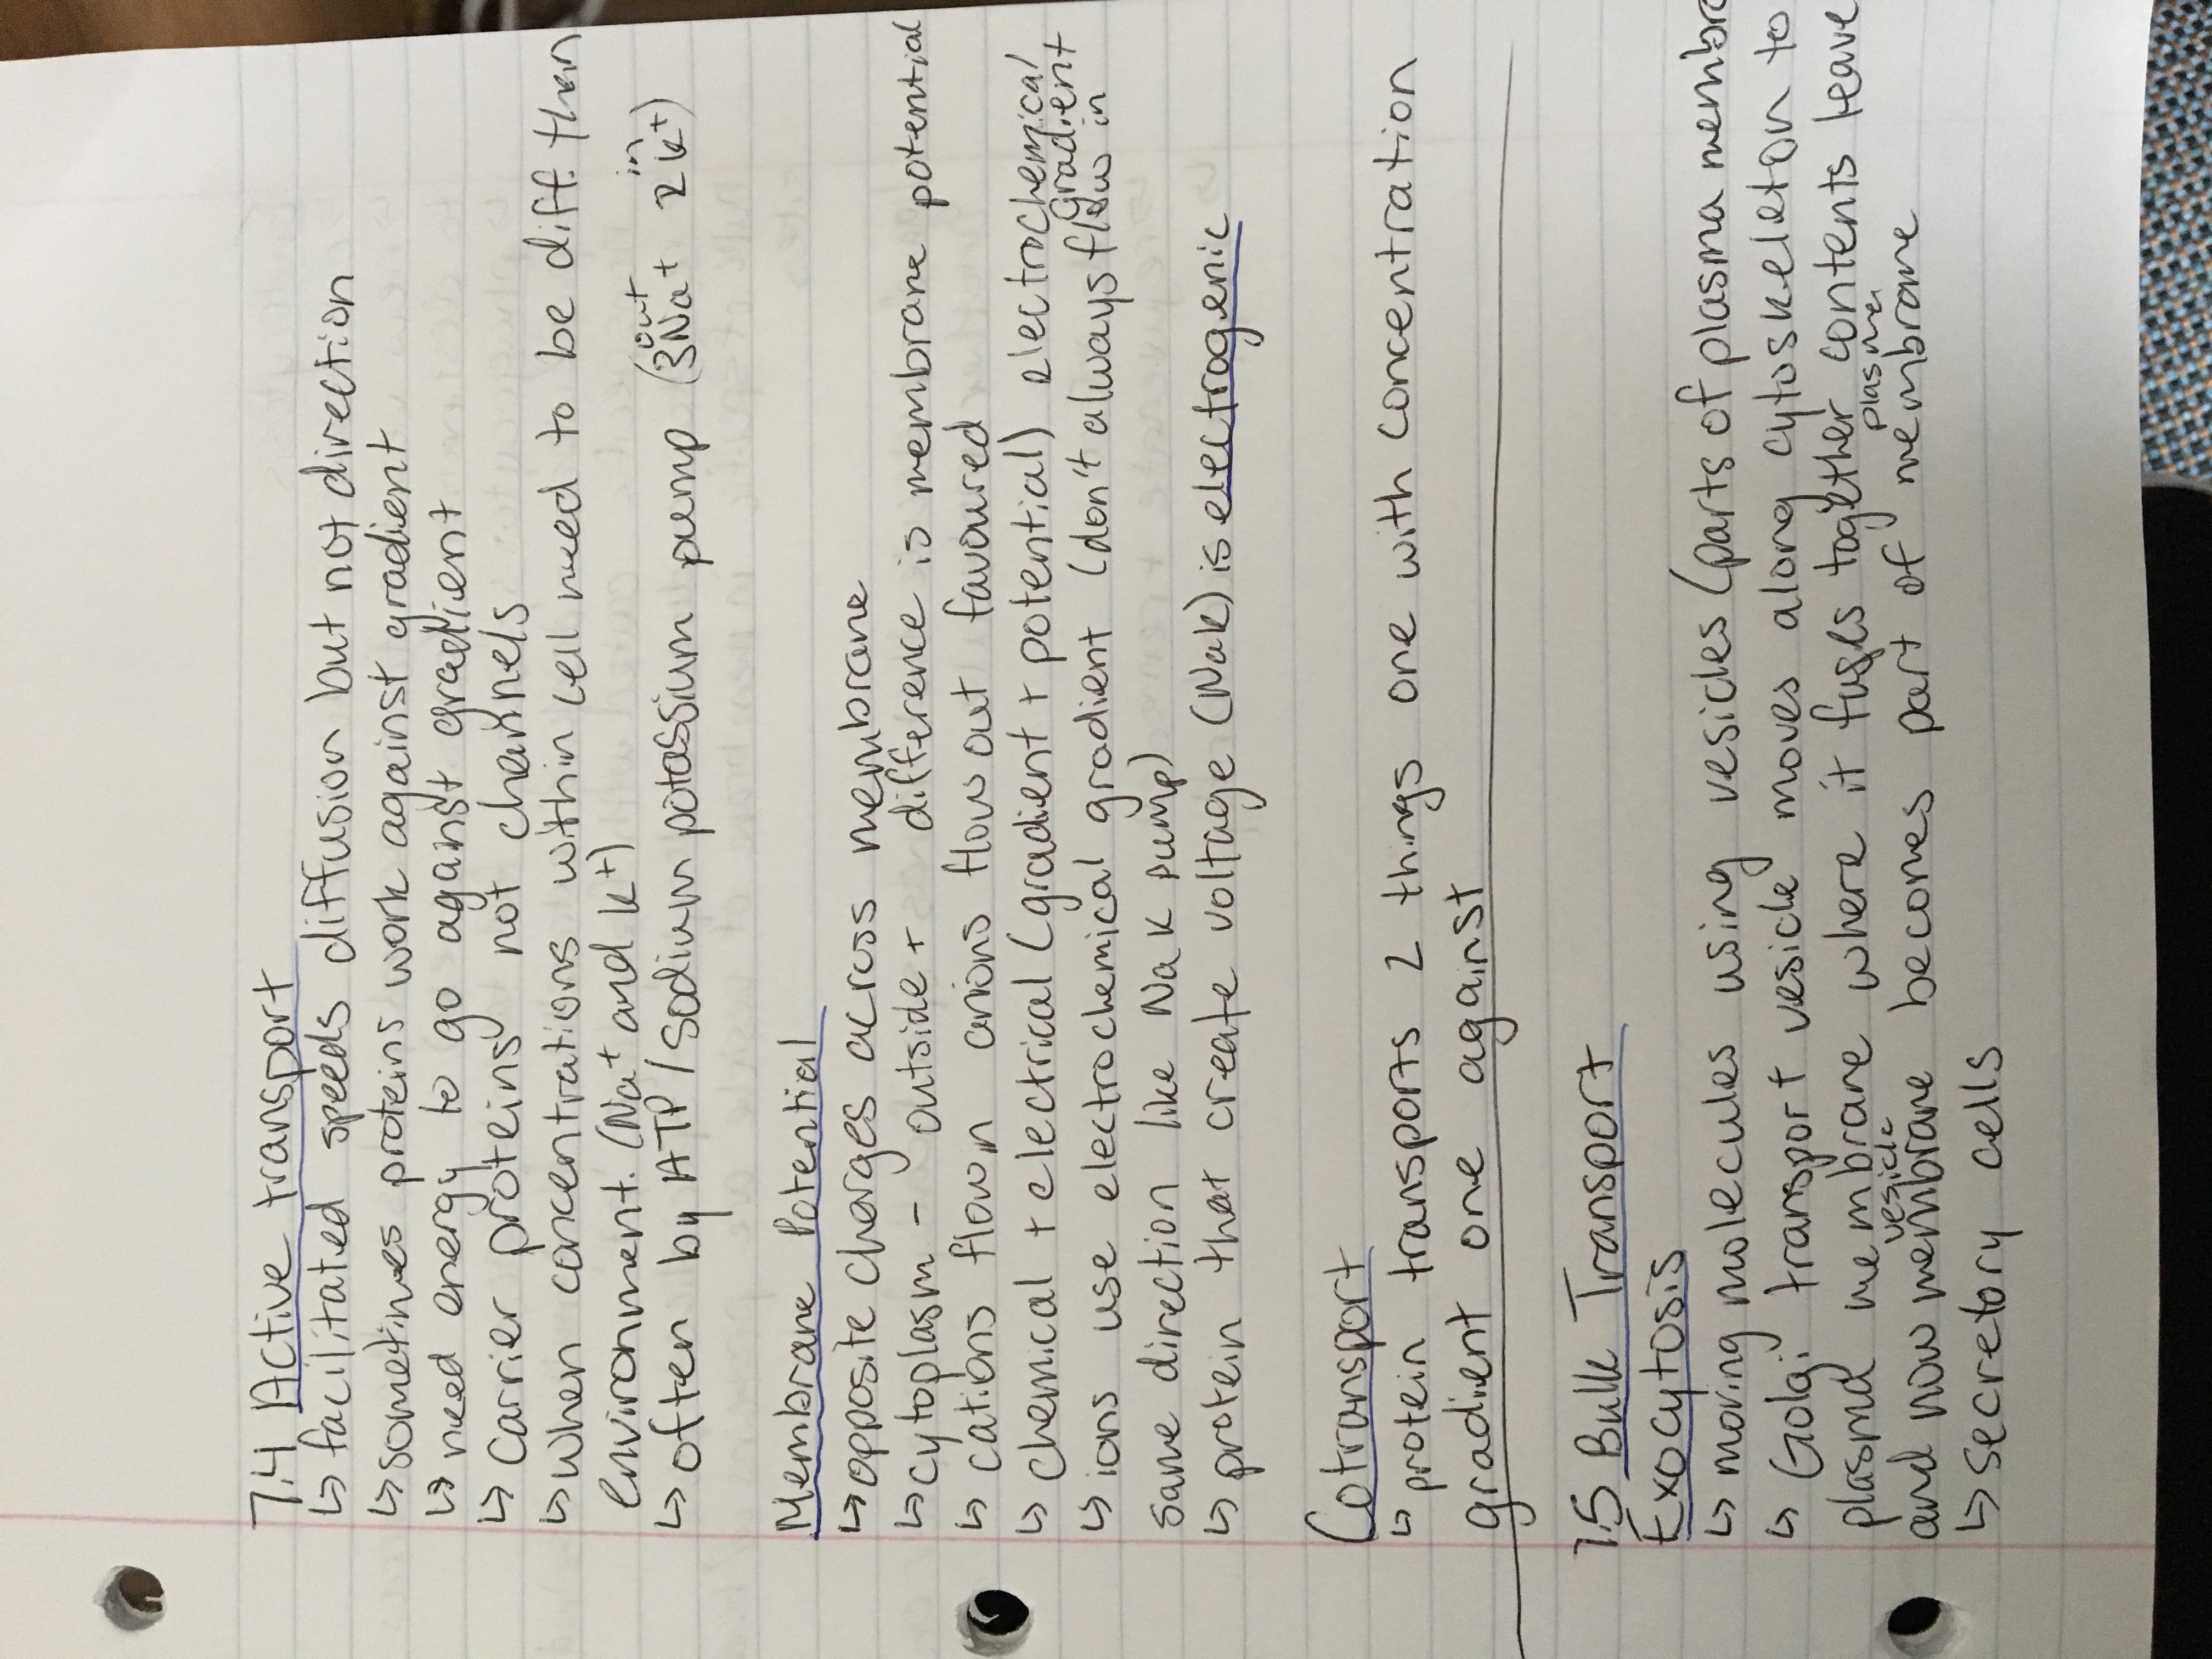 7.4 Active transport
↳ facilitated speeds diffusion but not direction
↳ sometimes proteins work against gradient
↳ need energy to go aganst gradient
↳ carrier proteins not channels
↳ when concentrations within cell need to be diff than
environment. (Na+ and K+)
↳ often by ATP / sodium potassium pump (3Na+ out 2K+ in)
Membrane Potential
↳ opposite charges across membrane
↳ cytoplasm - outside + difference is membrane potential
↳ cations flow in anions flow out favoured
↳ chemical + electrical (gradient + potential) electrochemical Gradient
↳ ions use electrochemical gradient (don't always flow in
same direction like Na K pump)
↳ protein that create voltage (NaK) is electrogenic
Cotransport
↳ protein transports 2 things one with concentration
gradient one against
7.5 Bulk Transport
Exocytosis
↳ moving molecules using vesicles (parts of plasma membra
↳ Golgi transport vesicle moves along cytoskeleton to
plasma membrane where it fuses together contents leave
and now vesicle membrane becomes part of plasma membrane
↳ secretory cells